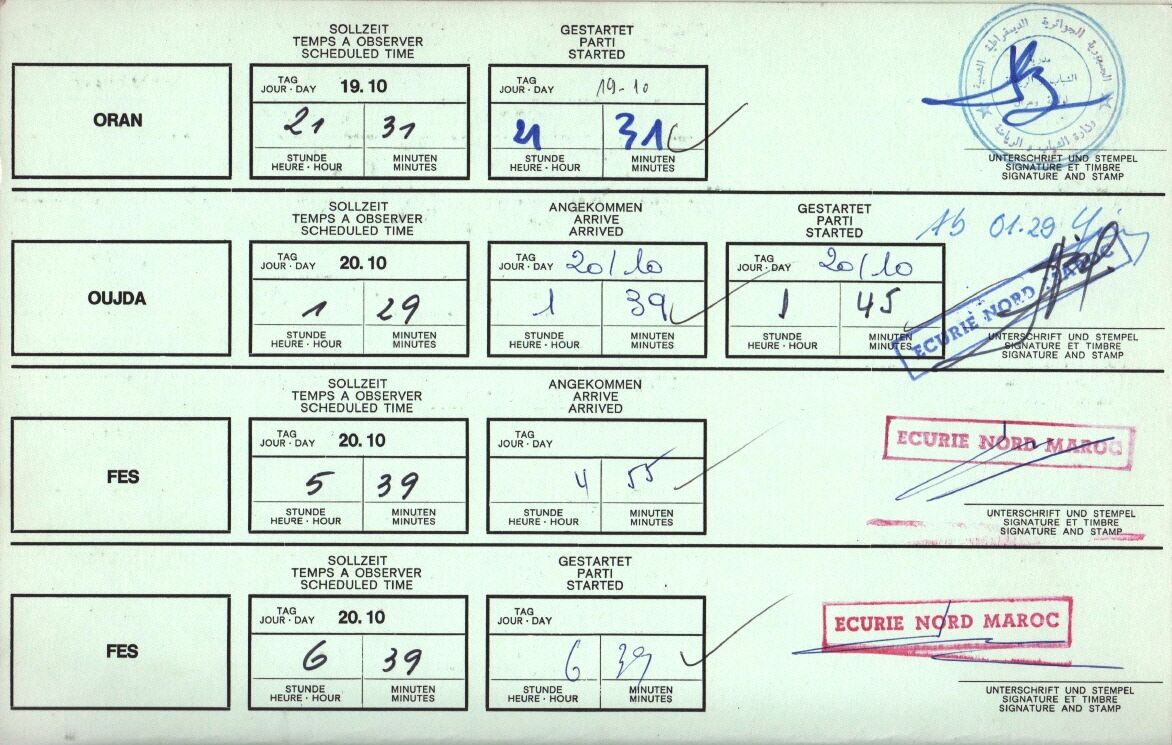 SOLLZEIT
TEMPS A OBSERVER
SCHEDULED TIME
GESTARTET
PARTI
STARTED
ORAN
TAG
JOUR · DAY 19.10
21 31
STUNDE
HEURE · HOUR
MINUTEN
MINUTES
TAG
JOUR · DAY 19-10
21 31
STUNDE
HEURE · HOUR
MINUTEN
MINUTES
UNTERSCHRIFT UND STEMPEL
SIGNATURE ET TIMBRE
SIGNATURE AND STAMP
SOLLZEIT
TEMPS A OBSERVER
SCHEDULED TIME
ANGEKOMMEN
ARRIVE
ARRIVED
GESTARTET
PARTI
STARTED
01.29
OUJDA
TAG
JOUR · DAY 20.10
1 29
STUNDE
HEURE · HOUR
MINUTEN
MINUTES
TAG
JOUR · DAY 20/10
1 39
STUNDE
HEURE · HOUR
MINUTEN
MINUTES
TAG
JOUR · DAY 20/10
1 45
STUNDE
HEURE · HOUR
MINUTEN
MINUTES
ECURIE NORD MAROC
UNTERSCHRIFT UND STEMPEL
SIGNATURE ET TIMBRE
SIGNATURE AND STAMP
SOLLZEIT
TEMPS A OBSERVER
SCHEDULED TIME
ANGEKOMMEN
ARRIVE
ARRIVED
FES
TAG
JOUR · DAY 20.10
5 39
STUNDE
HEURE · HOUR
MINUTEN
MINUTES
TAG
JOUR · DAY
4 55
STUNDE
HEURE · HOUR
MINUTEN
MINUTES
ECURIE NORD MAROC
UNTERSCHRIFT UND STEMPEL
SIGNATURE ET TIMBRE
SIGNATURE AND STAMP
SOLLZEIT
TEMPS A OBSERVER
SCHEDULED TIME
GESTARTET
PARTI
STARTED
FES
TAG
JOUR · DAY 20.10
6 39
STUNDE
HEURE · HOUR
MINUTEN
MINUTES
TAG
JOUR · DAY
6 39
STUNDE
HEURE · HOUR
MINUTEN
MINUTES
ECURIE NORD MAROC
UNTERSCHRIFT UND STEMPEL
SIGNATURE ET TIMBRE
SIGNATURE AND STAMP